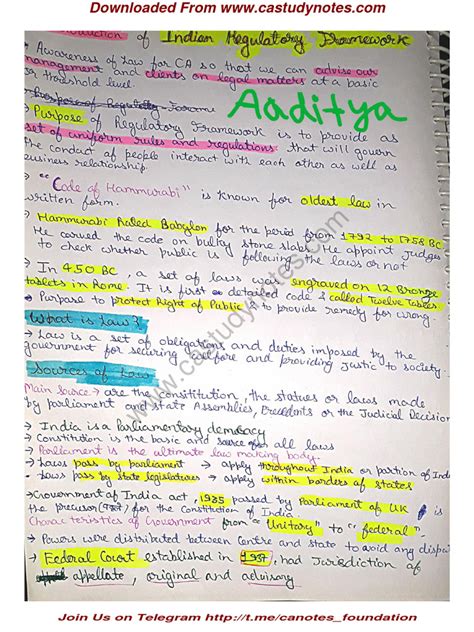 Downloaded From www.castudynotes.com
of Indian Regulatory Framework
→ Awareness of Law for CA so that we can advise our
management and clients on legal matters at a basic
or threshold level.
Aaditya
→ Purpose of Regulatory Framework is to provide as
set of uniform rules and regulations that will govern
the conduct of people interact with each other as well as
business relationship.
→ "Code of Hammurabi" is known for oldest law in
written form.
→ Hammurabi Ruled Babylon for the period from 1792 to 1758 BC
He carved the code on bulky stone slabs. He appoint Judges
to check whether public is following the laws or not
→ In 450 BC, a set of laws was engraved on 12 Bronze
tablets in Rome. It is first detailed code & called Twelve Tables.
Purpose to protect Right of Public & to provide remedy for wrong.
What is Law?
→ Law is a set of obligations and duties imposed by the
government for securing welfare and providing Justic to society.
Sources of Law
Main source → are the constitution, the statues or laws made
by parliament and State Assemblies, Precedents or the Judicial Decision
→ India is a Parliamentary democracy
→ Constitution is the basic and source of all laws
→ Parliament is the ultimate law making body.
→ Laws pass by parliament → apply throughout India or partion of India
→ Laws pass by State legislatures → apply within borders of states
→ Government of India act, 1935 passed by Parliament of U.K is
the precursor for the Constitution of India.
Characteristics of Government from "Unitary" to "federal".
→ Powers were distributed between Centre and state to avoid any
→ Federal Court established in 1937, had Jurisdiction of
appellate, original and advisory
www.castudynotes.com
Join Us on Telegram http://t.me/canotes_foundation